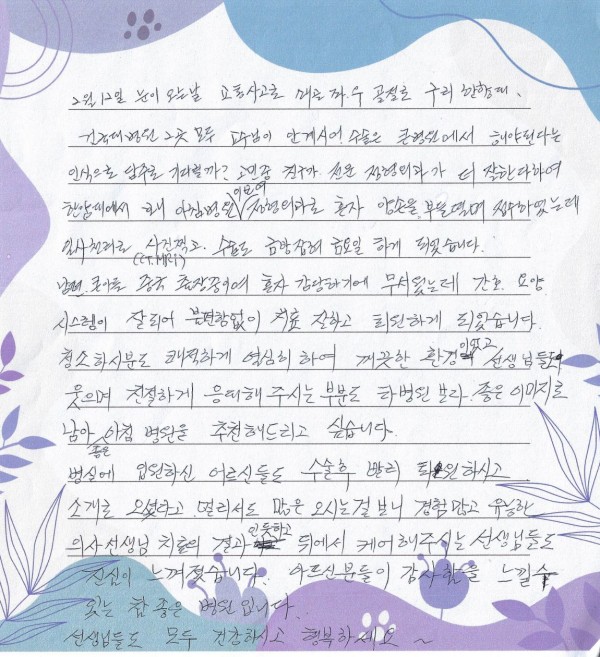 2월 12일 눈이 오는날 교통사고로 메골 좌.우 골절로 구리 한양대,
건국대병원 2곳 모두 교수님이 안계시어. 수술은 큰병원에서 해야된다는
인식으로 앞주로 기다릴까? 고민중 친구가 전문 정형외과가 더 잘한다하여
한양대에서 나와 아침병원 이라며 정형외과로 혼자 양손을 부들떨며 접수하였는데
일사천리로 사진찍고. 수술도 금방잡혀 금요일 하게 되었습니다.
(CT.MRI)
남편. 중국 출장중이어 혼자 감당하기에 무서웠는데 간호. 요양
시스템이 잘되어 불편함없이 치료 잘하고 퇴원하게 되었습니다.
청소하시분도 쾌적하게 열심히 하여 깨끗한 환경이었고 선생님들도
웃으며 친절하게 응대해 주시는 부분도 타병원 보다. 좋은 이미지로
남아 아침 병원을 추천해드리고 싶습니다.
같은 병실에 입원하신 어르신들도 수술후 빨리 퇴원하시고
소개로 오셨다고 멀리서도 많은 오시는걸 보니 경험많고 유능한
의사선생님 치료의 결과인듯하고 뒤에서 케어해주시는 선생님들도
진심이 느껴졌습니다. 아르신분들이 감사함을 느낄수
있는 참 좋은 병원입니다.
선생님들도 모두 건강하시고 행복하세요 ~